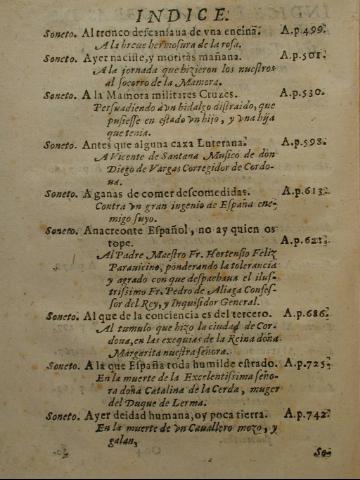 INDICE.
Soneto. Al tronco descansaua de vna encina. A.p.499.
A la breue hermosura de la rosa.
Soneto. Ayer naciste, y moriràs mañana. A.p.501.
A la jornada que hizieron los nuestros
al socorro de la Mamora.
Soneto. A la Mamora militares Cruzes. A.p.530.
Persuadiendo à vn hidalgo distraido, que
pusiesse en estado vn hijo, y vna hija
que tenia.
Soneto. Antes que alguna caxa Luterana. A.p.598.
A Vicente de Santana Musico de don
Diego de Vargas Corregidor de Cordo-
ua.
Soneto. A ganas de comer descomedidas. A.p.613.
Contra vn gran ingenio de España ene-
migo suyo.
Soneto. Anacreonte Español, no ay quien os
tope. A.p.621.
Al Padre Maestro Fr. Hortensio Feliz
Parauicino, ponderando la tolerancia
y agrado con que despachaua el ilus-
trissimo Fr. Pedro de Aliaga Confes-
sor del Rey, y Inquisidor General.
Soneto. Al que de la conciencia es del tercero. A.p.686.
Al tumulo que hizo la ciudad de Cor-
doua, en las exequias de la Reina doña
Margarita nuestra señora.
Soneto. A la que España toda humilde estrado. A.p.725.
En la muerte de la Excelentissima seño-
ra doña Catalina de la Cerda, muger
del Duque de Lerma.
Soneto. Ayer deidad humana, oy poca tierra. A.p.742.
En la muerte de vn Cauallero moço, y
galan,
So-